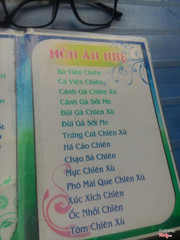 MÓN ĂN NHẸ
Bò Viên Chiên
Cá Viên Chiên
Cánh Gà Chiên Xù
Cánh Gà Sốt Me
Đùi Gà Chiên Xù
Đùi Gà Sốt Me
Trứng Cút Chiên Xù
Há Cảo Chiên
Chạo Sả Chiên
Mực Chiên Xù
Phô Mai Que Chiên Xù
Xúc Xích Chiên
Ốc Nhồi Chiên
Tôm Chiên Xù